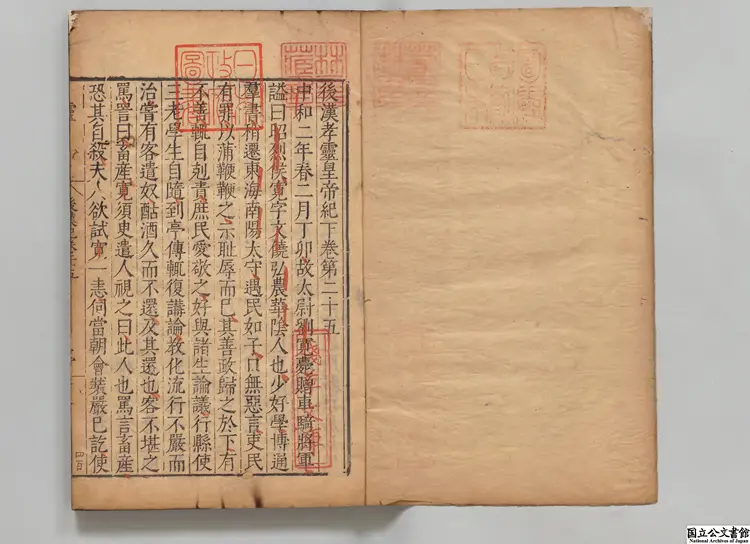 後漢孝靈皇帝紀下卷第二十五
中和二年春二月丁卯故太尉劉寛薨贈車騎將軍
謚曰昭烈侯寛字文饒弘農華陰人也少好學博通
羣書稍遷東海南陽太守遇民如子口無惡言吏民
有罪以蒲鞭鞭之示耻辱而已其善政歸之於下有
不善輒自剋責庶民愛敬之好與諸生論議行縣使
三老學生自隨到亭傳輒復講論教化流行不嚴而
治嘗有客遣奴酤酒久而不還及其還也客不堪之
罵詈曰畜産寛須史遣人視之曰此人也罵言畜産
恐其自殺夫人欲試寛一恚伺當朝會裝嚴已訖使
国立公文書館
National Archives of Japan